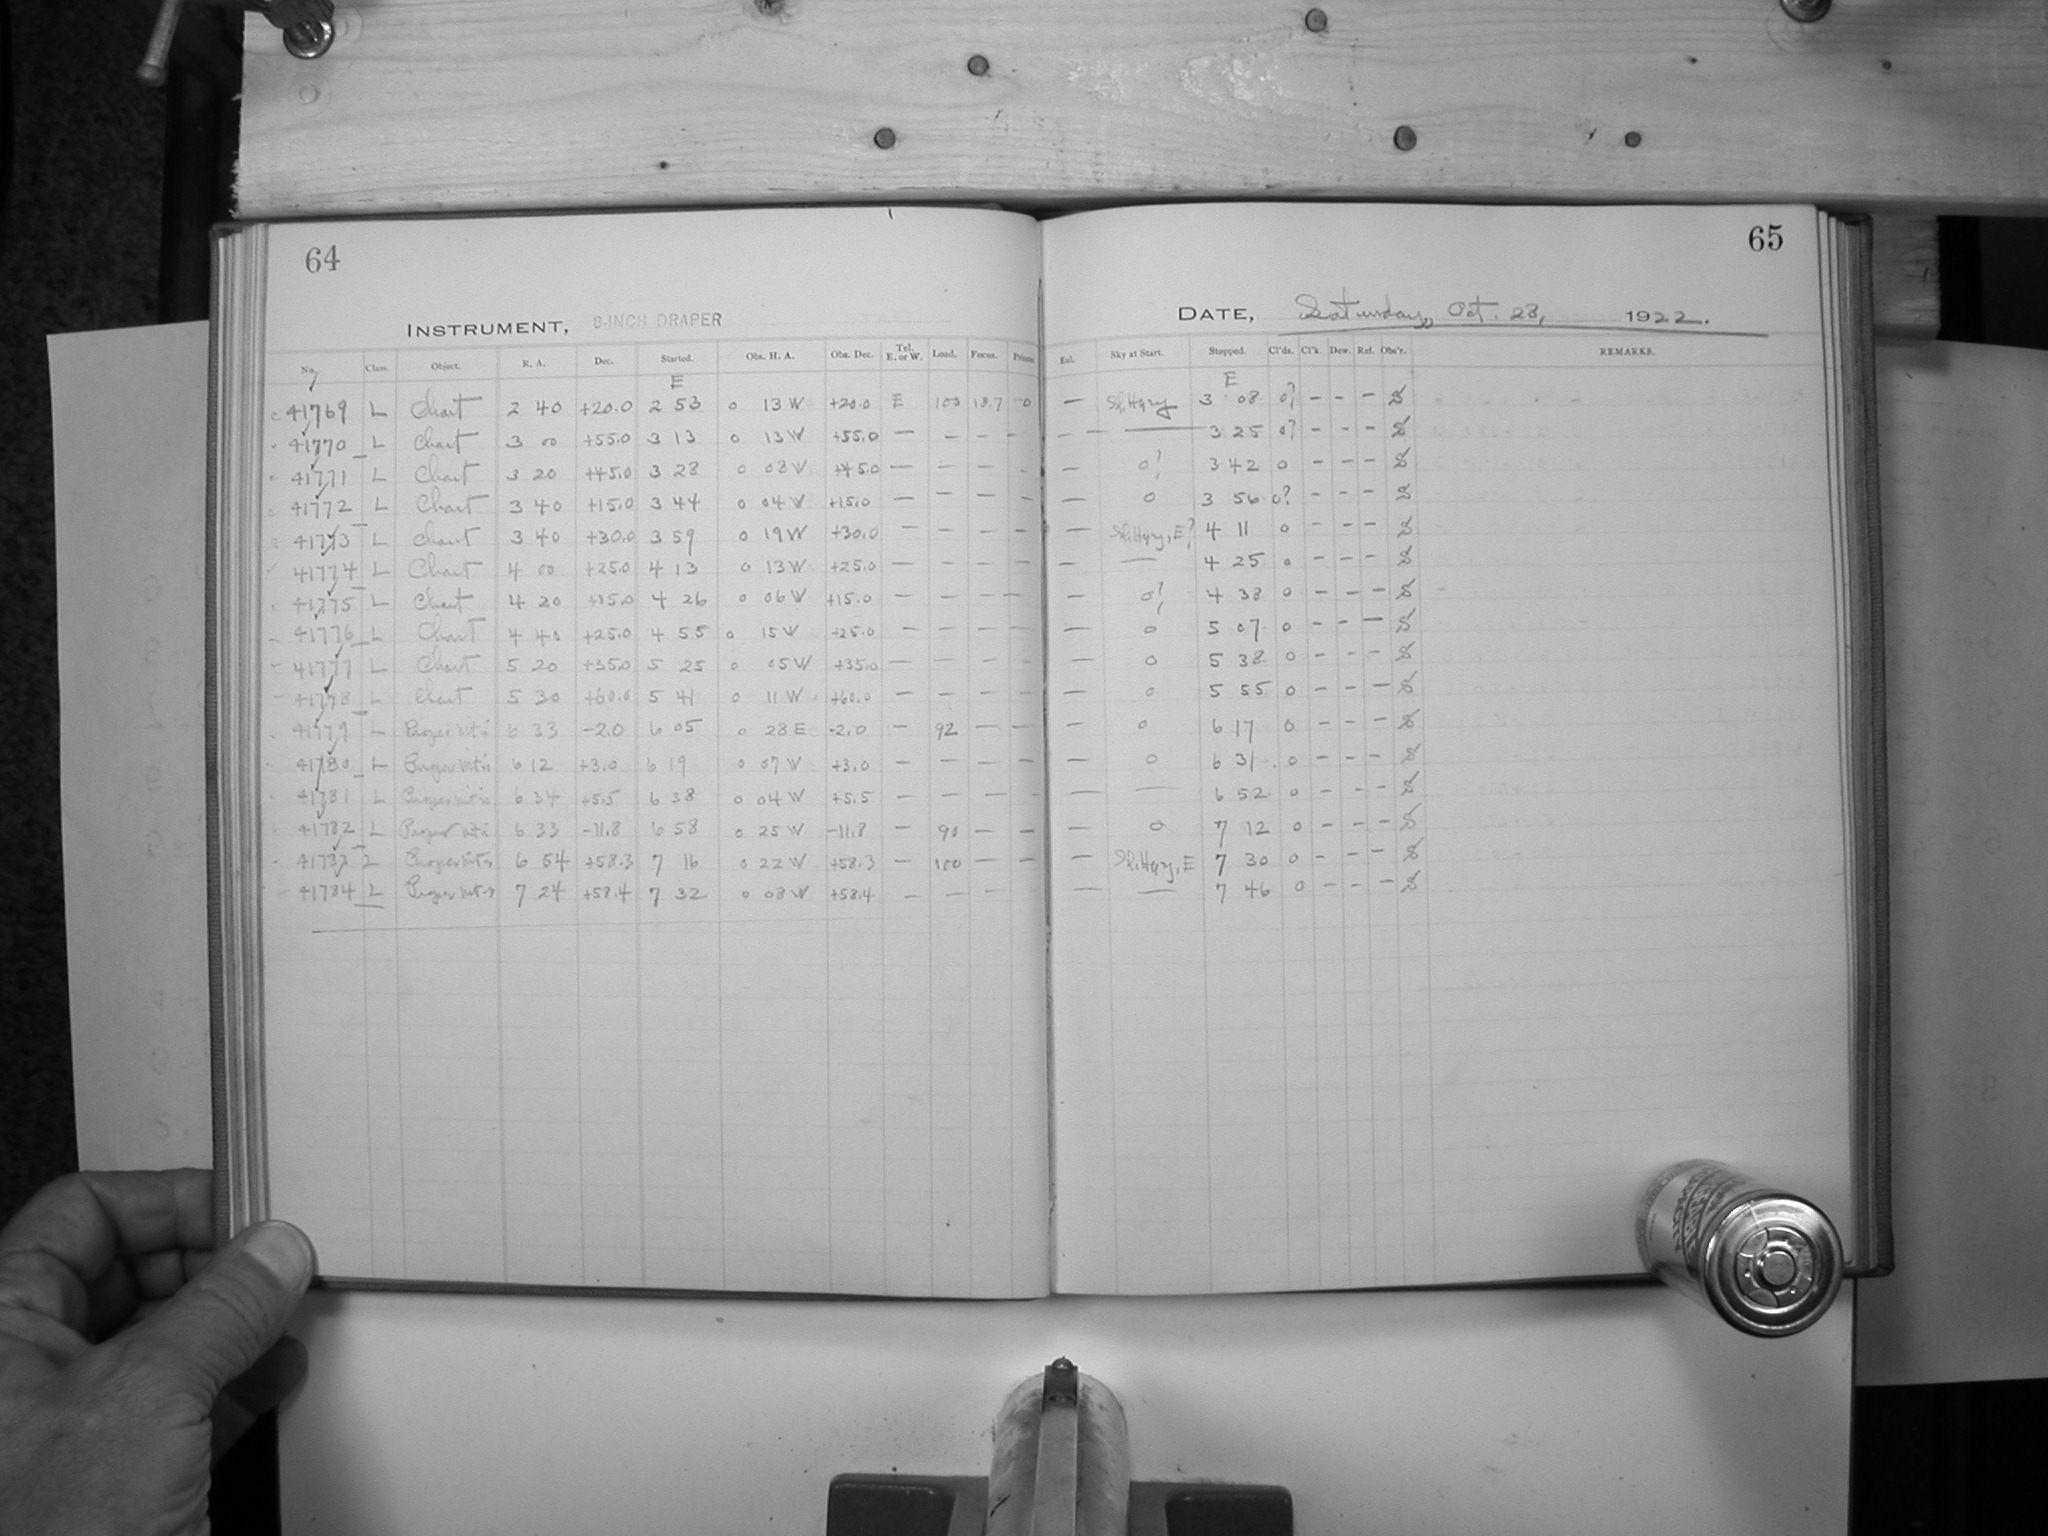 64
INSTRUMENT, 8-INCH DRAPER
No. Class. Object. R. A. Dec. Started. Obs. H. A. Obs. Dec. Tel. E. or W. Load. Focus. Prisms
E
41769 L Chart 2 40 +20.0 2 53 0 13 W +20.0 E 100 13.7 0
41770 L Chart 3 00 +55.0 3 13 0 13 W +55.0 — — — —
41771 L Chart 3 20 +45.0 3 28 0 08 W +45.0 — — — —
41772 L Chart 3 40 +15.0 3 44 0 04 W +15.0 — — — —
41773 L Chart 3 40 +30.0 3 59 0 19 W +30.0 — — — —
41774 L Chart 4 00 +25.0 4 13 0 13 W +25.0 — — — —
41775 L Chart 4 20 +15.0 4 26 0 06 W +15.0 — — — —
41776 L Chart 4 40 +25.0 4 55 0 15 W +25.0 — — — —
41777 L Chart 5 20 +35.0 5 25 0 05 W +35.0 — — — —
41778 L Chart 5 30 +60.0 5 41 0 11 W +60.0 — — — —
41779 L Proper 6 33 -2.0 6 05 0 28 E -2.0 — 92 — —
41780 L Proper 6 12 +3.0 6 19 0 07 W +3.0 — — — —
41781 L Proper 6 34 +5.5 6 38 0 04 W +5.5 — — — —
41782 L Proper 6 33 -11.8 6 58 0 25 W -11.8 — 90 — —
41783 L Proper 6 54 +58.3 7 16 0 22 W +58.3 — 100 — —
41784 L Proper 7 24 +58.4 7 32 0 08 W +58.4 — — — —
65
DATE, Saturday, Oct. 28, 1922.
Sky at Start. Stopped. Cl'ds. Cl'k. Dew. Ref. Obs'r. REMARKS.
E
— Sl. Hazy 3 08 0? — — —
— — 3 25 0? — — —
— 0? 3 42 0 — — —
— 0 3 56 0? — — —
— Sl. Hazy, E? 4 11 0 — — —
— — 4 25 0 — — —
— 0? 4 38 0 — — —
— 0 5 07 0 — — —
— 0 5 38 0 — — —
— 0 5 55 0 — — —
— 0 6 17 0 — — —
— 0 6 31 0 — — —
— — 6 52 0 — — —
— 0 7 12 0 — — —
— Sl. Hazy, E 7 30 0 — — —
— — 7 46 0 — — —